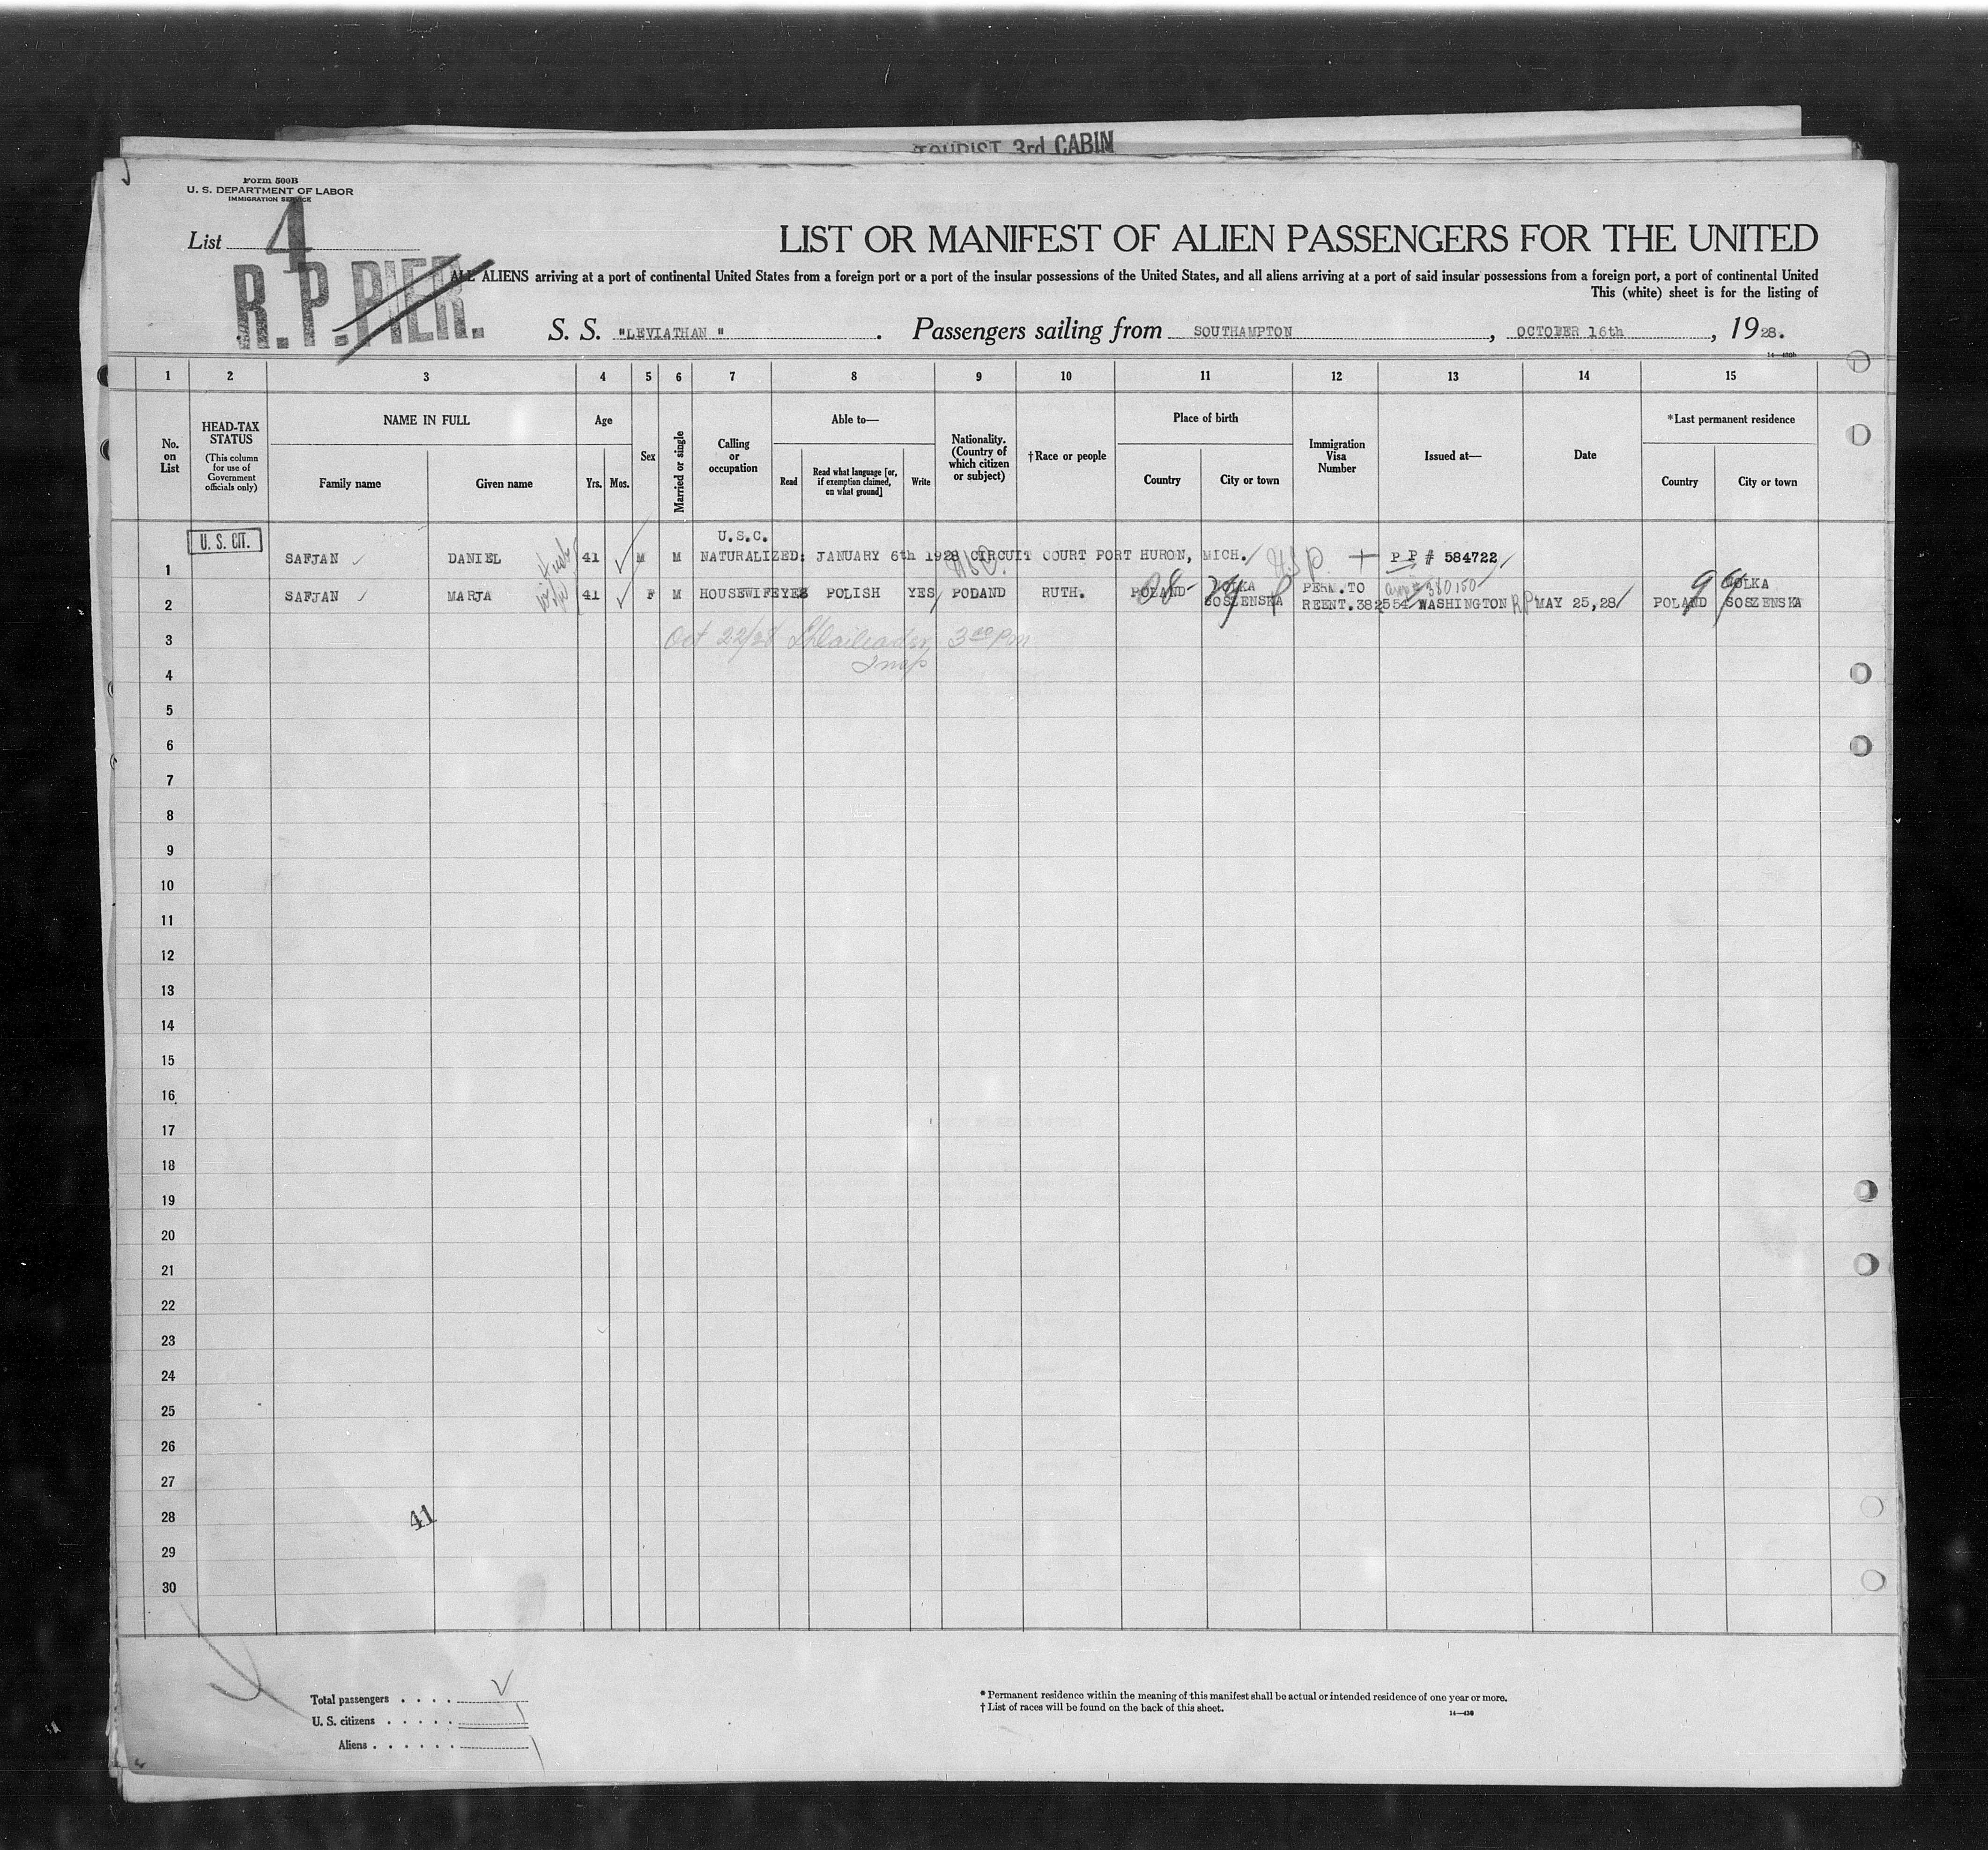 TOURIST 3rd CABIN
Form 500B
U. S. DEPARTMENT OF LABOR
IMMIGRATION SERVICE
List 4
LIST OR MANIFEST OF ALIEN PASSENGERS FOR THE UNITED
R. P. PIER.
ALL ALIENS arriving at a port of continental United States from a foreign port or a port of the insular possessions of the United States, and all aliens arriving at a port of said insular possessions from a foreign port, a port of continental United
This (white) sheet is for the listing of
S. S. "LEVIATHAN" . Passengers sailing from SOUTHAMPTON , OCTOBER 16th , 1928.
14—430b
1 2 3 4 5 6 7 8 9 10 11 12 13 14 15
No. on List
HEAD-TAX STATUS
(This column for use of Government officials only)
NAME IN FULL
Family name Given name
Age
Yrs. Mos.
Sex
Married or single
Calling or occupation
Able to—
Read
Read what language [or, if exemption claimed, on what ground]
Write
Nationality. (Country of which citizen or subject)
†Race or people
Place of birth
Country City or town
Immigration Visa Number
Issued at—
Date
*Last permanent residence
Country City or town
U.S.C.
1 U. S. CIT. SAFJAN DANIEL Husb 41 M M NATURALIZED: JANUARY 6th 1928 CIRCUIT COURT PORT HURON, MICH. USP P P # 584722
2 SAFJAN MARJA wife 41 F M HOUSEWIFE YES POLISH YES POLAND RUTH. POLAND WOLKA SOSZENSKA PERM. TO REENT. 382554 380150 WASHINGTON RP MAY 25, 28 POLAND WOLKA SOSZENSKA
38- 24 P 99
3 Oct 22/28 3 00 pm
Insp
4
5
6
7
8
9
10
11
12
13
14
15
16
17
18
19
20
21
22
23
24
25
26
27
28
41
29
30
Total passengers . . . .
U. S. citizens . . . . .
Aliens . . . . . .
* Permanent residence within the meaning of this manifest shall be actual or intended residence of one year or more.
† List of races will be found on the back of this sheet.
14—430